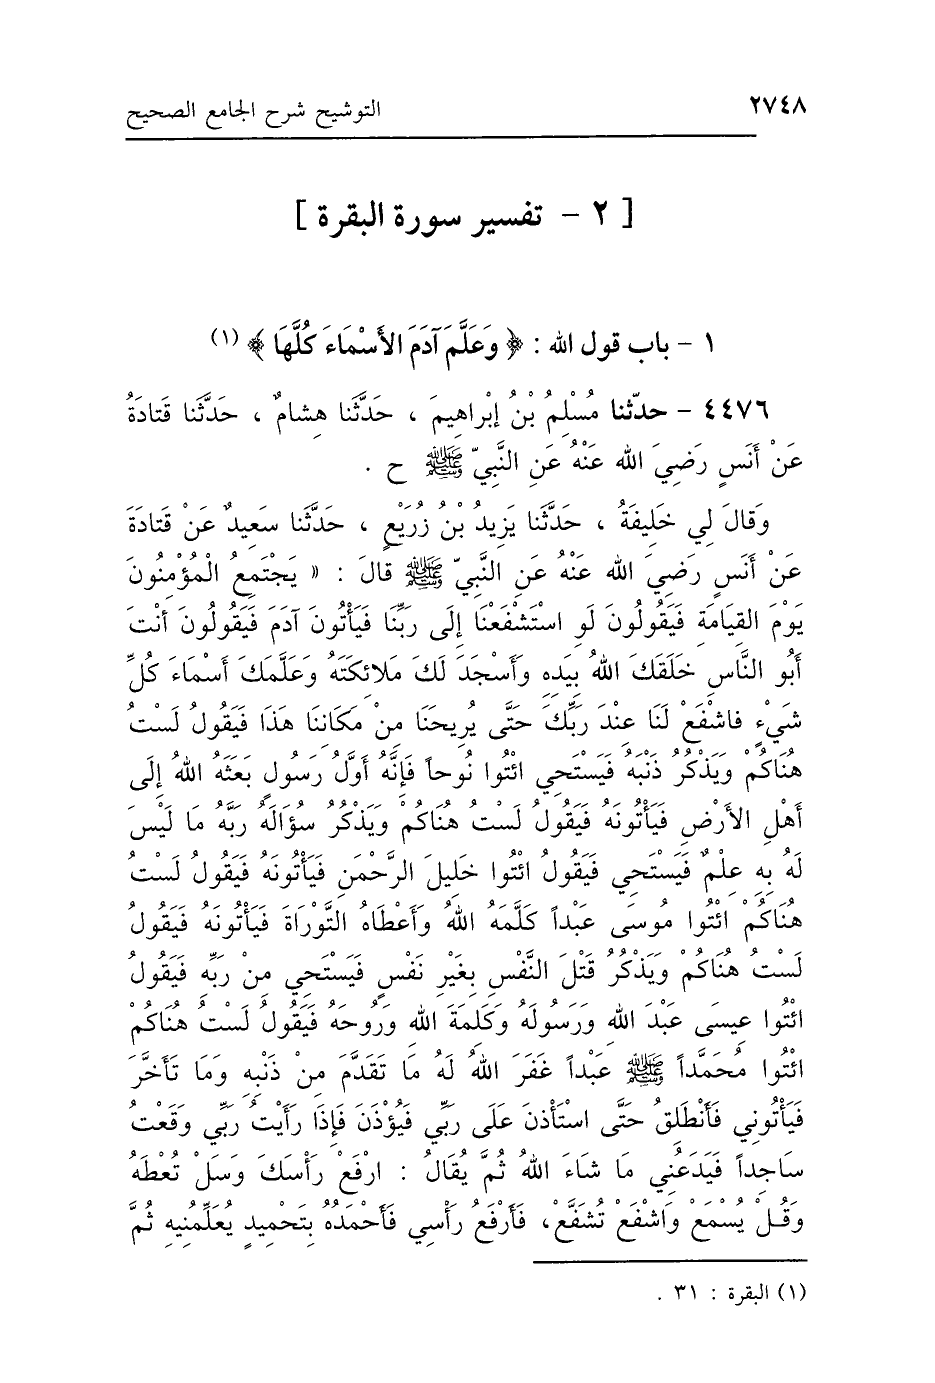 ٢٧٤٨ التوشيح شرح الجامع الصحيح
[ ٢ - تفسير سورة البقرة ]
١ - باب قول الله : ﴿ وَعَلَّمَ آدَمَ الأَسْمَاءَ كُلَّهَا ﴾ (١)
٤٤٧٦ - حدّثنا مُسْلِمُ بْنُ إِبْرَاهِيمَ ، حَدَّثَنَا هِشَامٌ ، حَدَّثَنَا قَتَادَةُ
عَنْ أَنَسٍ رَضِيَ الله عَنْهُ عَنِ النَّبِيّ ﷺ ح .
وَقَالَ لِي خَلِيفَةُ ، حَدَّثَنَا يَزِيدُ بْنُ زُرَيْعٍ ، حَدَّثَنَا سَعِيدٌ عَنْ قَتَادَةَ
عَنْ أَنَسٍ رَضِيَ الله عَنْهُ عَنِ النَّبِيّ ﷺ قَالَ : « يَجْتَمِعُ الْمُؤْمِنُونَ
يَوْمَ القِيَامَةِ فَيَقُولُونَ لَوِ اسْتَشْفَعْنَا إِلَى رَبِّنَا فَيَأْتُونَ آدَمَ فَيَقُولُونَ أَنْتَ
أَبُو النَّاسِ خَلَقَكَ اللهُ بِيَدِهِ وَأَسْجَدَ لَكَ مَلَائِكَتَهُ وَعَلَّمَكَ أَسْمَاءَ كُلِّ
شَيْءٍ فَاشْفَعْ لَنَا عِنْدَ رَبِّكَ حَتَّى يُرِيحَنَا مِنْ مَكَانِنَا هَذَا فَيَقُولُ لَسْتُ
هُنَاكُمْ وَيَذْكُرُ ذَنْبَهُ فَيَسْتَحِي ائْتُوا نُوحاً فَإِنَّهُ أَوَّلُ رَسُولٍ بَعَثَهُ اللهُ إِلَى
أَهْلِ الأَرْضِ فَيَأْتُونَهُ فَيَقُولُ لَسْتُ هُنَاكُمْ وَيَذْكُرُ سُؤَالَهُ رَبَّهُ مَا لَيْسَ
لَهُ بِهِ عِلْمٌ فَيَسْتَحِي فَيَقُولُ ائْتُوا خَلِيلَ الرَّحْمَنِ فَيَأْتُونَهُ فَيَقُولُ لَسْتُ
هُنَاكُمْ ائْتُوا مُوسَى عَبْداً كَلَّمَهُ اللهُ وَأَعْطَاهُ التَّوْرَاةَ فَيَأْتُونَهُ فَيَقُولُ
لَسْتُ هُنَاكُمْ وَيَذْكُرُ قَتْلَ النَّفْسِ بِغَيْرِ نَفْسٍ فَيَسْتَحِي مِنْ رَبِّهِ فَيَقُولُ
ائْتُوا عِيسَى عَبْدَ اللهِ وَرَسُولَهُ وَكَلِمَةَ اللهِ وَرُوحَهُ فَيَقُولُ لَسْتُ هُنَاكُمْ
ائْتُوا مُحَمَّداً ﷺ عَبْداً غَفَرَ اللهُ لَهُ مَا تَقَدَّمَ مِنْ ذَنْبِهِ وَمَا تَأَخَّرَ
فَيَأْتُونِي فَأَنْطَلِقُ حَتَّى اسْتَأْذِنَ عَلَى رَبِّي فَيُؤْذَنَ فَإِذَا رَأَيْتُ رَبِّي وَقَعْتُ
سَاجِداً فَيَدَعُنِي مَا شَاءَ اللهُ ثُمَّ يُقَالُ : ارْفَعْ رَأْسَكَ وَسَلْ تُعْطَهُ
وَقُلْ يُسْمَعْ وَاشْفَعْ تُشَفَّعْ، فَأَرْفَعُ رَأْسِي فَأَحْمَدُهُ بِتَحْمِيدٍ يُعَلِّمُنِيهِ ثُمَّ
(١) البقرة : ٣١ .